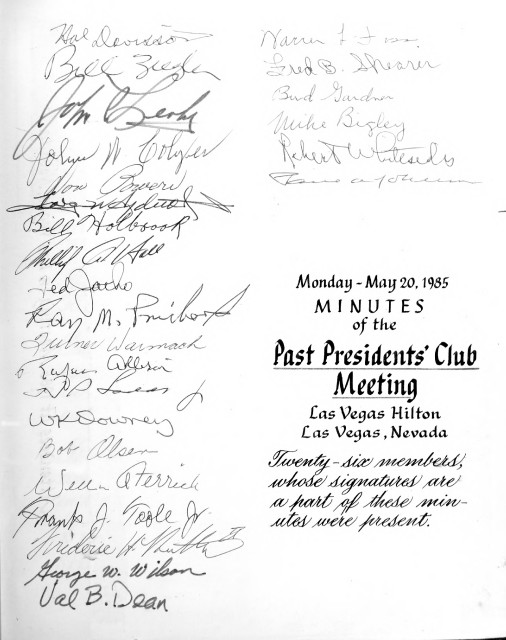 Hal Davidson
Bill Ziegler
John
John W
Don Bowers
Bill Holbrook
Phillip A Hall
Ted Jacho
Ray M.
Turner Warmack
Rufus Allison
Jr
WK Downey
Bob Olsen
Frank J. Toole Jr.
H
George W. Wilson
Val B. Dean
Warren F Foss
Fred B. Shearer
Bud Gardner
Mike Bigley
Robert Whitesides
Monday - May 20, 1985
MINUTES
of the
Past Presidents' Club
Meeting
Las Vegas Hilton
Las Vegas, Nevada
Twenty-six members,
whose signatures are
a part of these min-
utes were present.